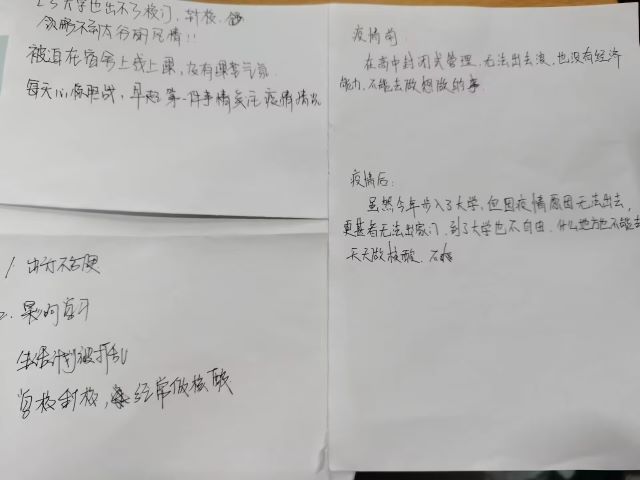 上了大学也出不了校门，封校，
欣赏不到大谷的风情！！
被迫在宿舍上线上课，没有课堂气氛
每天心惊胆战，早起第一件事情关注疫情情况
1. 出行不方便
2. 影响复习
生活计划被打乱
学校封校，经常做核酸
疫情前
在高中封闭式管理，无法出去浪，也没有经济
能力，不能去做想做的事
疫情后：
虽然今年步入了大学，但因疫情原因无法出去，
更甚者无法出家门，到了大学也不自由，什么地方也不能去
天天做核酸，